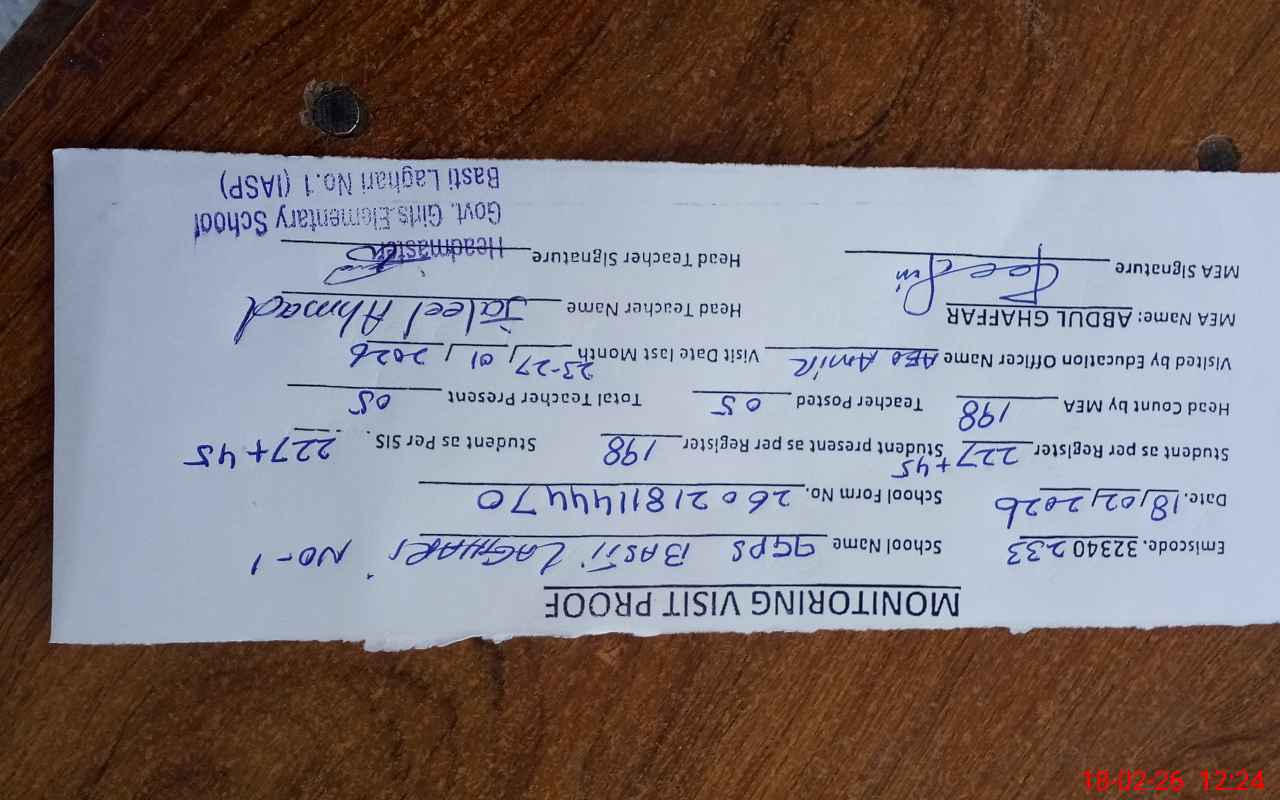 MONITORING VISIT PROOF
Emiscode. 32340233 School Name GGPS BASTI LAGHARI NO-1
Date. 18/02/2026 School Form No. 260218114470
Student as per Register 227+45 Student present as per Register 198 Student as Per SIS. 227+45
Head Count by MEA 198 Teacher Posted 05 Total Teacher Present 05
Visited by Education Officer Name AEO Amir Visit Date last Month 23-27/01/2026
MEA Name: ABDUL GHAFFAR Head Teacher Name Jaleel Ahmad
MEA Signature Head Teacher Signature
Headmaster
Govt. Girls.Elementary School
Basti Laghari No.1 (IASP)
18-02-26 12:24